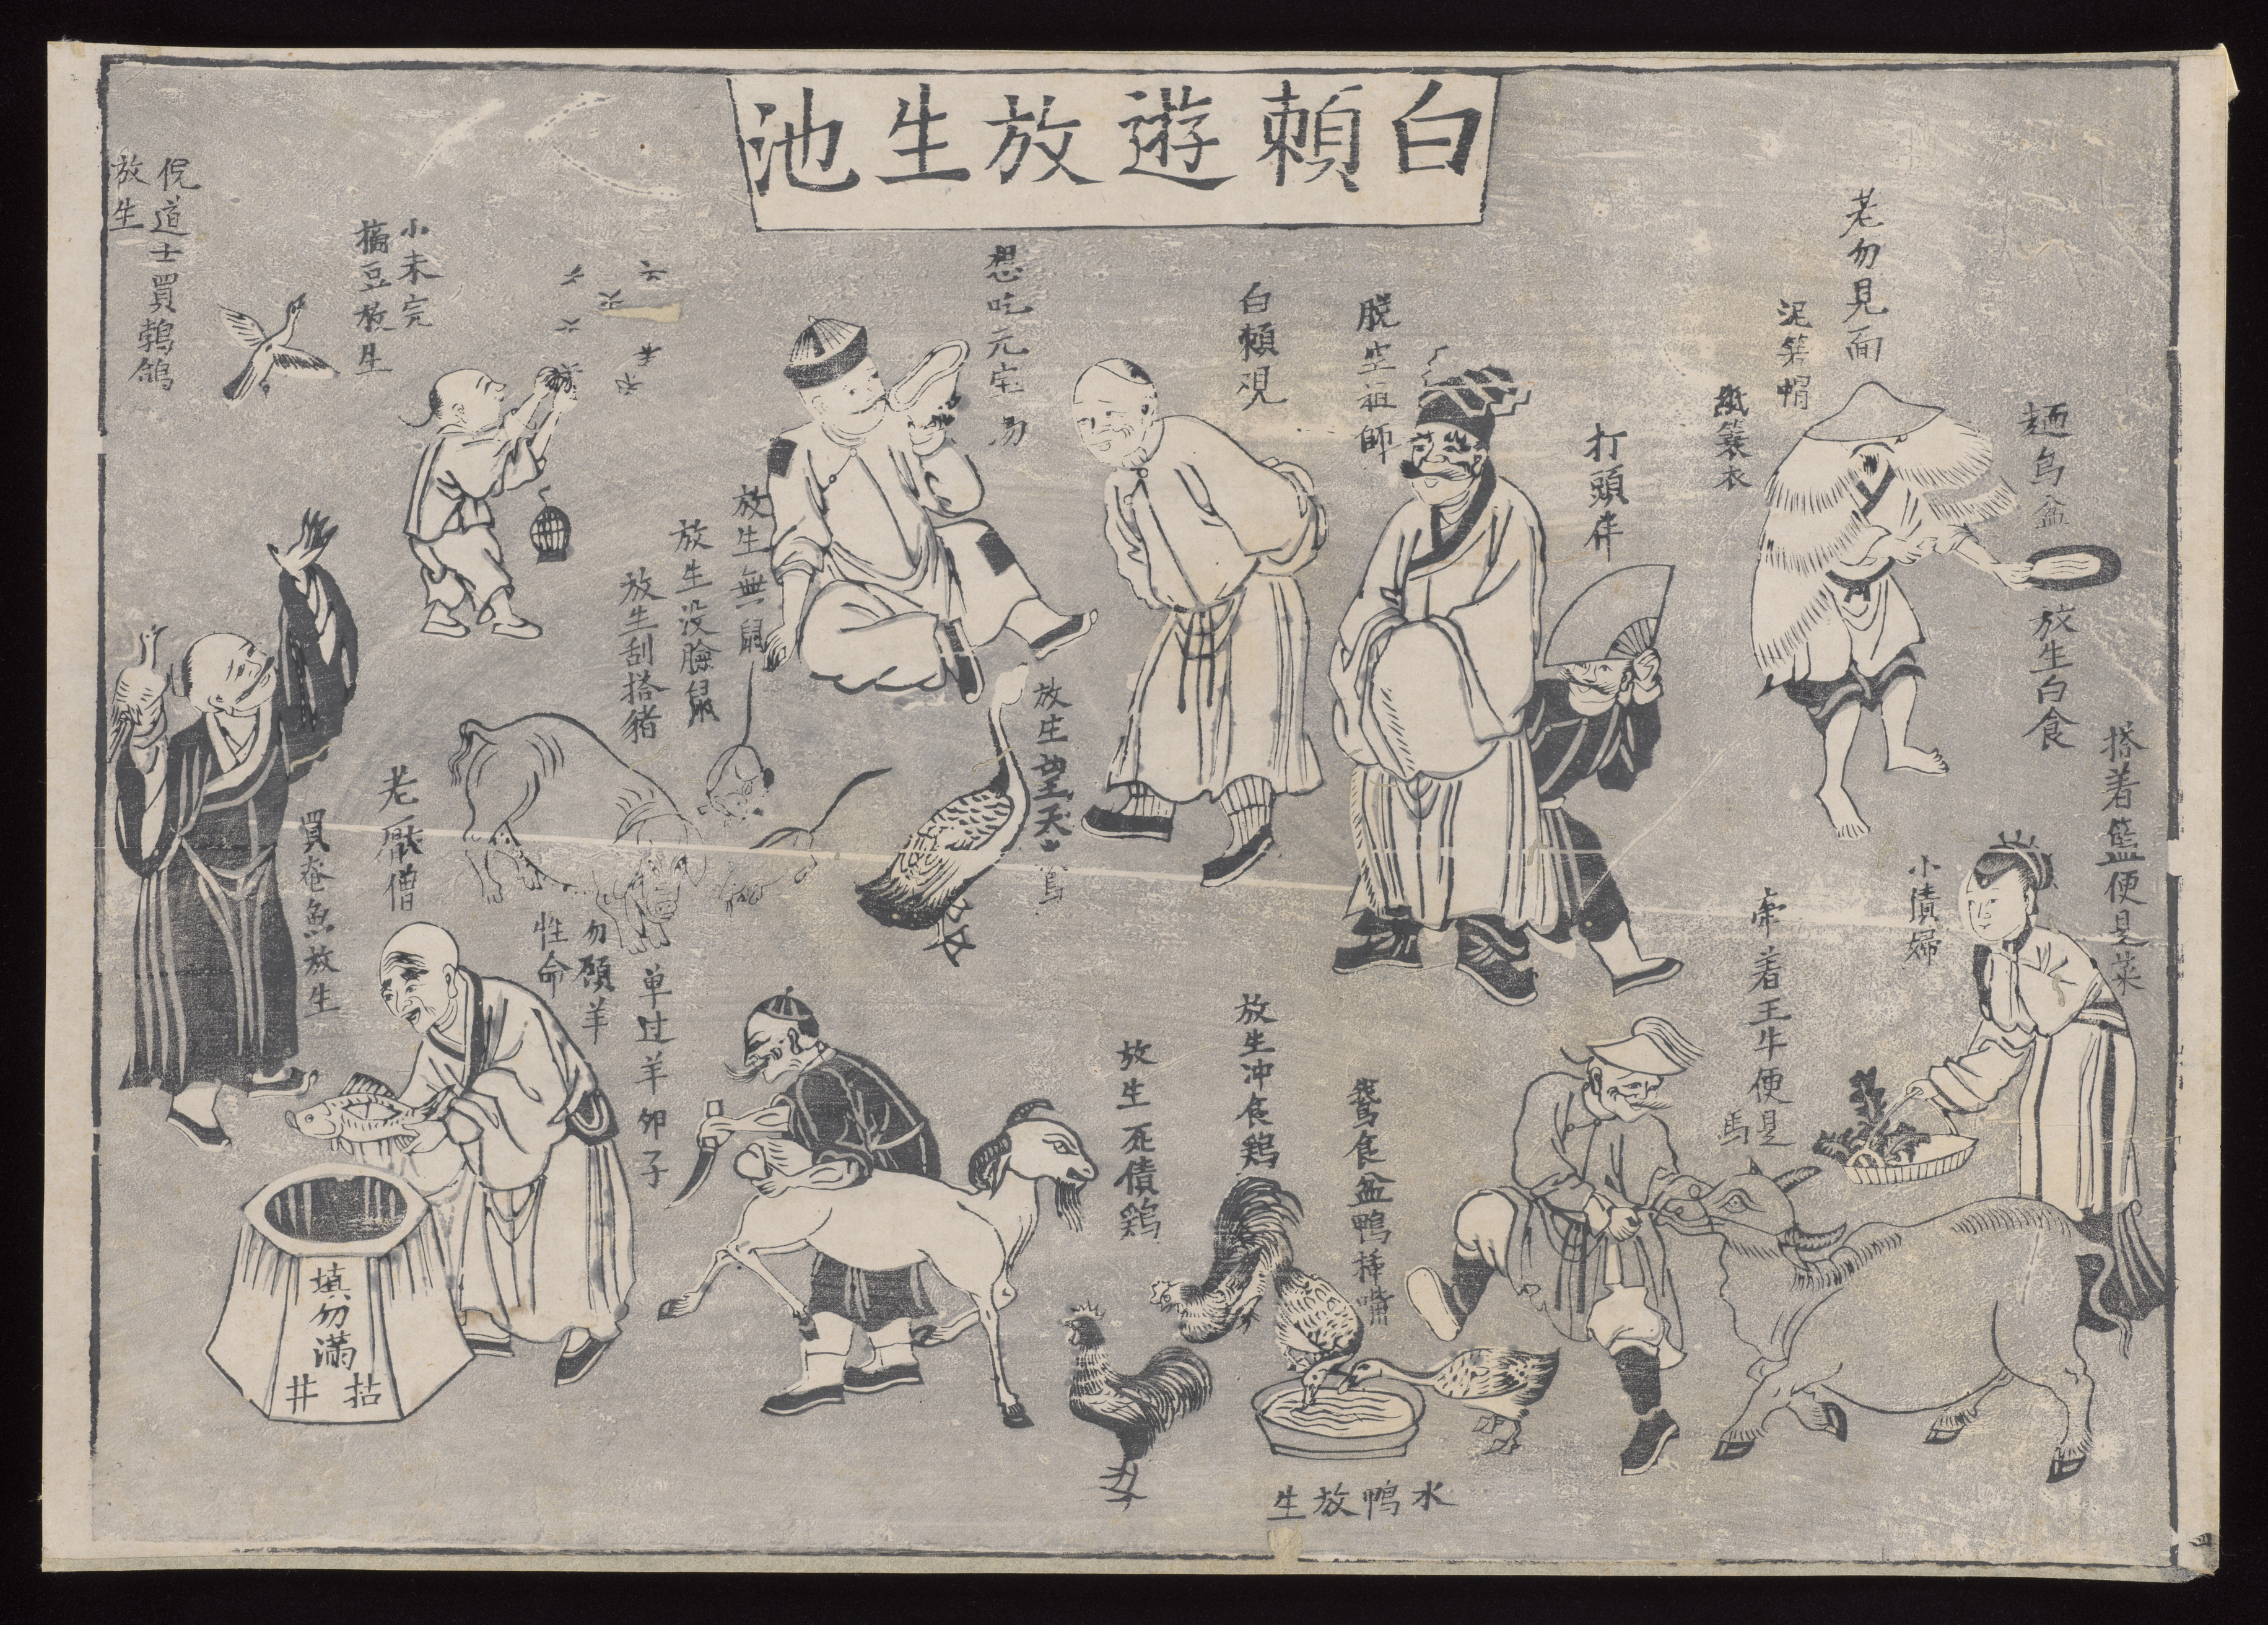 白賴遊放生池
老勿見面
泥箬帽
紙蓑衣
麵烏盆
放生白食
搭着籃便是菜
小債婦
牽着王牛便是
馬
打頭伴
脱空祖師
白賴覌
想吃元宝湯
放生無
放生没臉鼠
放生刮搭豬
放生望天鵞
小未完
摘豆放生
倪道士買鵓鴿
放生
老厭僧
買老魚放生
勿顧羊
性命
单过羊卵子
填勿滿
拈井
放生死債鷄
放生冲食鷄
鵞食盆鴨揷嘴
水鴨放生